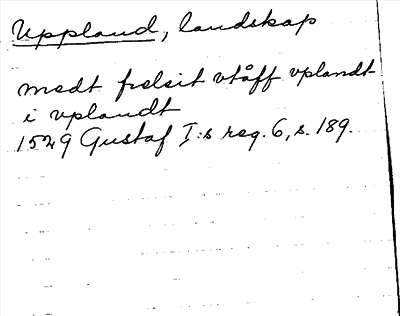 Uppland, landskap
medt frelsit vtåff vplandt
i vplandt
1529 Gustaf I:s reg. 6, s. 189.